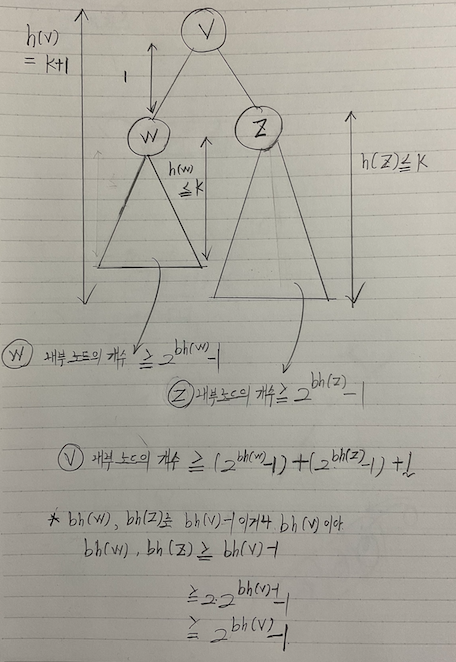 h(v)
= k+1
V
1
W
Z
h(w)
≦k
h(z)≦k
W 내부 노드의 개수 ≧ 2^bh(w)-1
Z 내부 노드의 개수 ≧ 2^bh(z)-1
V 내부 노드의 개수 ≧ (2^bh(w)-1)+(2^bh(z)-1)+1
* bh(w), bh(z)는 bh(v)-1 이거나 bh(v) 이다
bh(w), bh(z) ≧ bh(v)-1
≧ 2·2^bh(v)-1-1
≧ 2^bh(v)-1